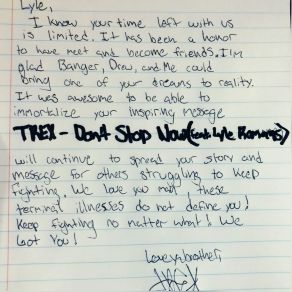 Lyle,
I know your time left with us
is limited. It has been a honor
to have meet and become friends. I'm
glad Banger, Drew, and Me could
bring one of your dreams to reality.
It was awesome to be able to
immortalize your inspiring message
TREX - Don't Stop Now (feat. Lyle
will continue to spread your story and
message for others struggling to keep
fighting. We love you man, these
terminal illnesses do not define you!
Keep fighting no matter what! We
Got You!
Love ya brother,